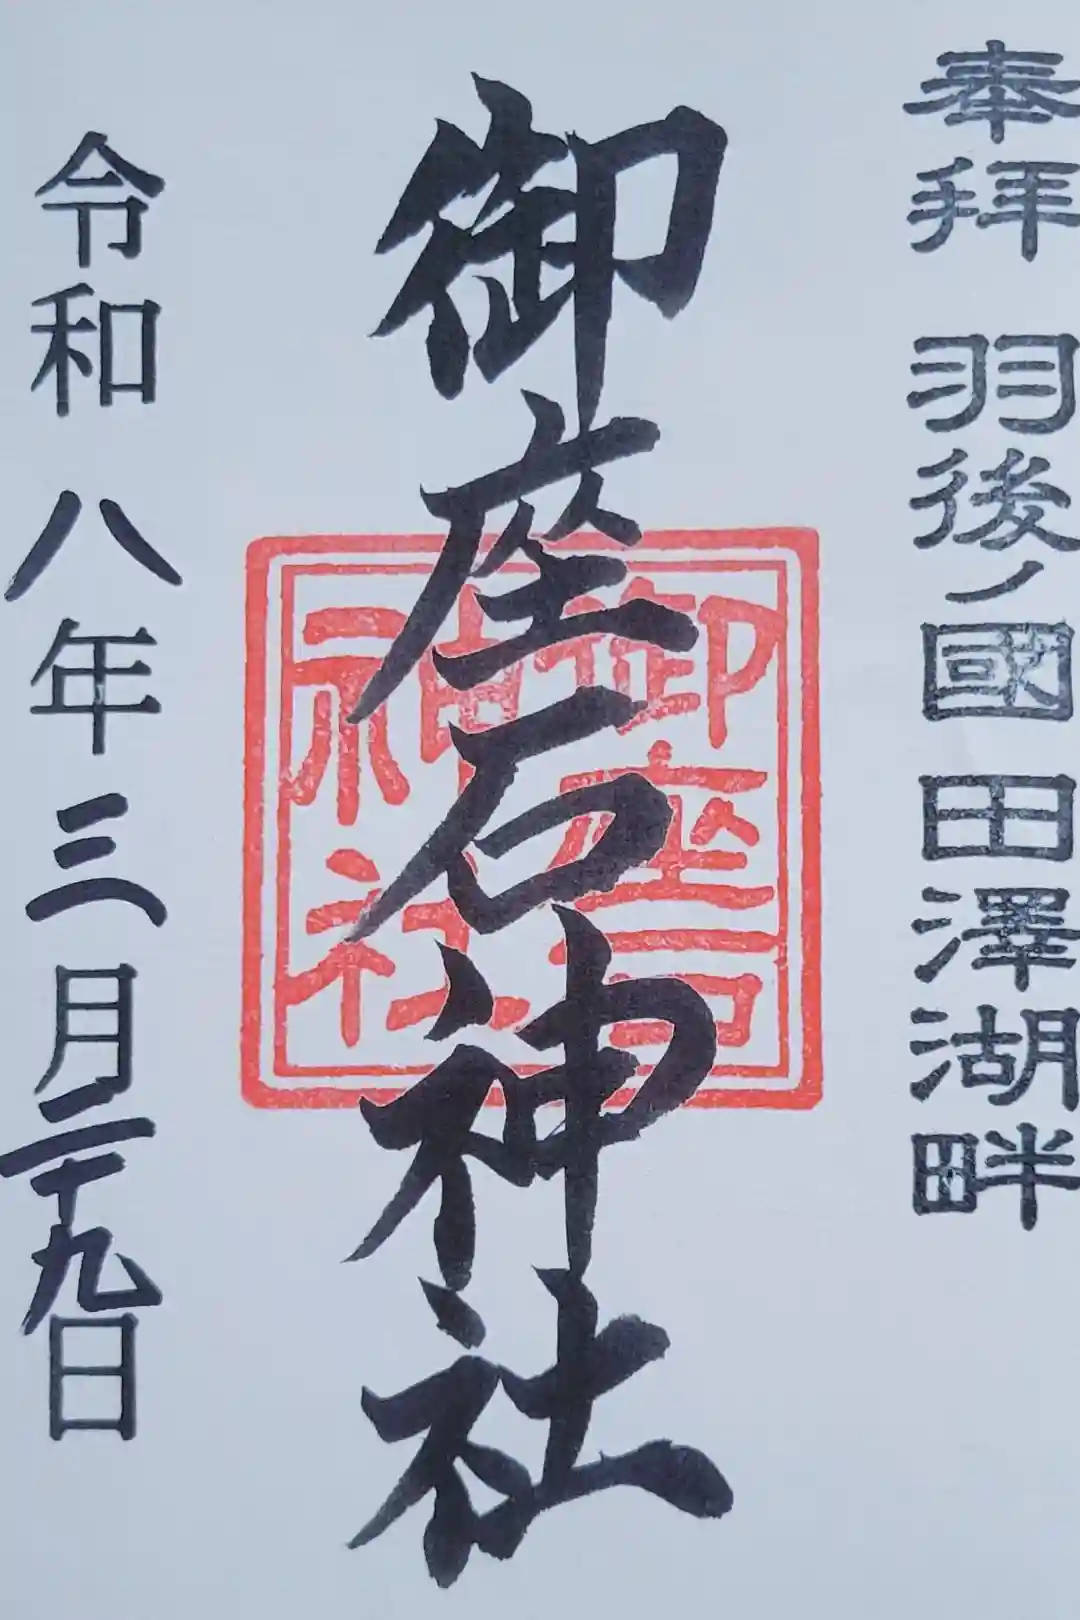 奉拝 羽後ノ國 田澤湖畔
御座石神社
御座石
神社
令和八年三月二十九日